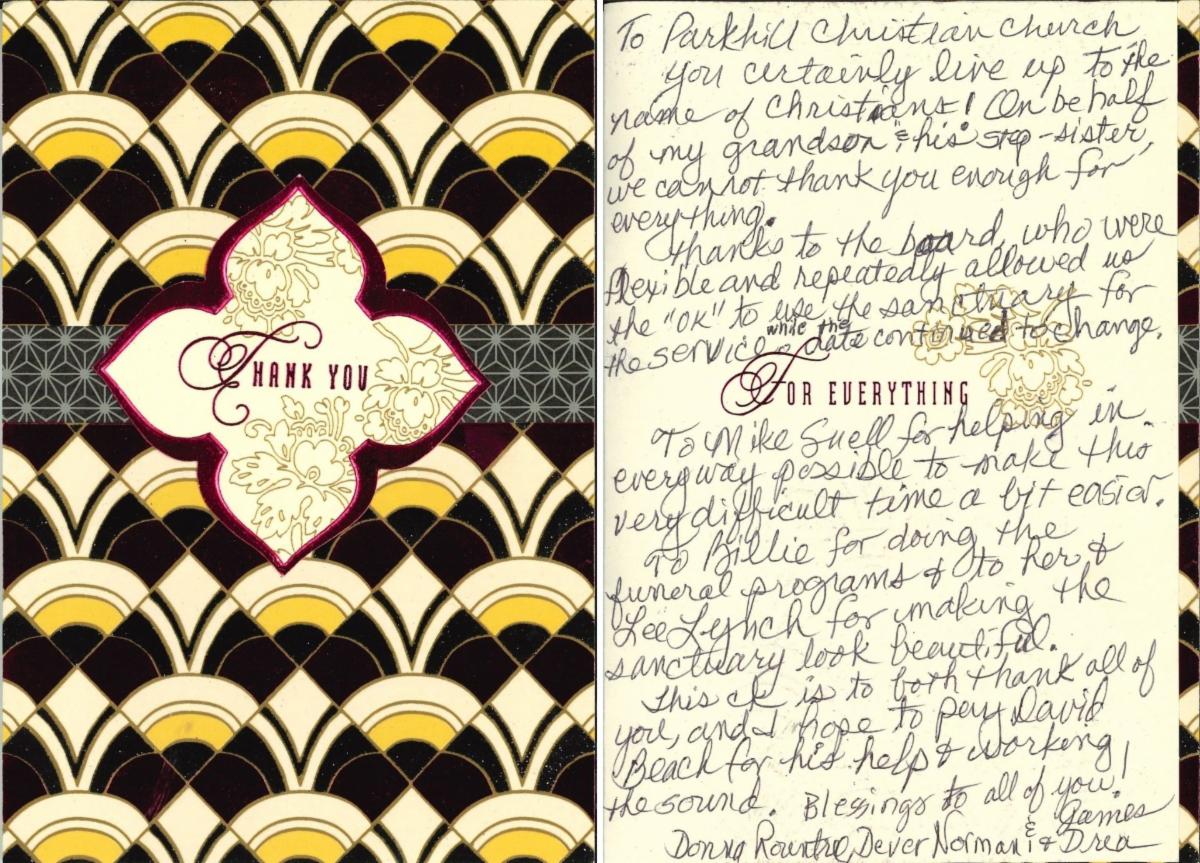 THANK YOU
To Parkhill Christian Church
You certainly live up to the
name of Christians! On behalf
of my grandson & his step-sister,
we cannot thank you enough for
everything.
Thanks to the board, who were
flexible and repeatedly allowed us
the "OK" to use the sanctuary for
the service while the date continued to change.
FOR EVERYTHING
To Mike Snell for helping in
everyway possible to make this
very difficult time a bit easier.
To Billie for doing the
funeral programs & to her &
Lee Lynch for making the
sanctuary look beautiful.
This ck is to both thank all of
you, and I hope to pay David
Beach for his help & working
the sound. Blessings to all of you!
Donna Rountree, Dever Norman & James & Drea